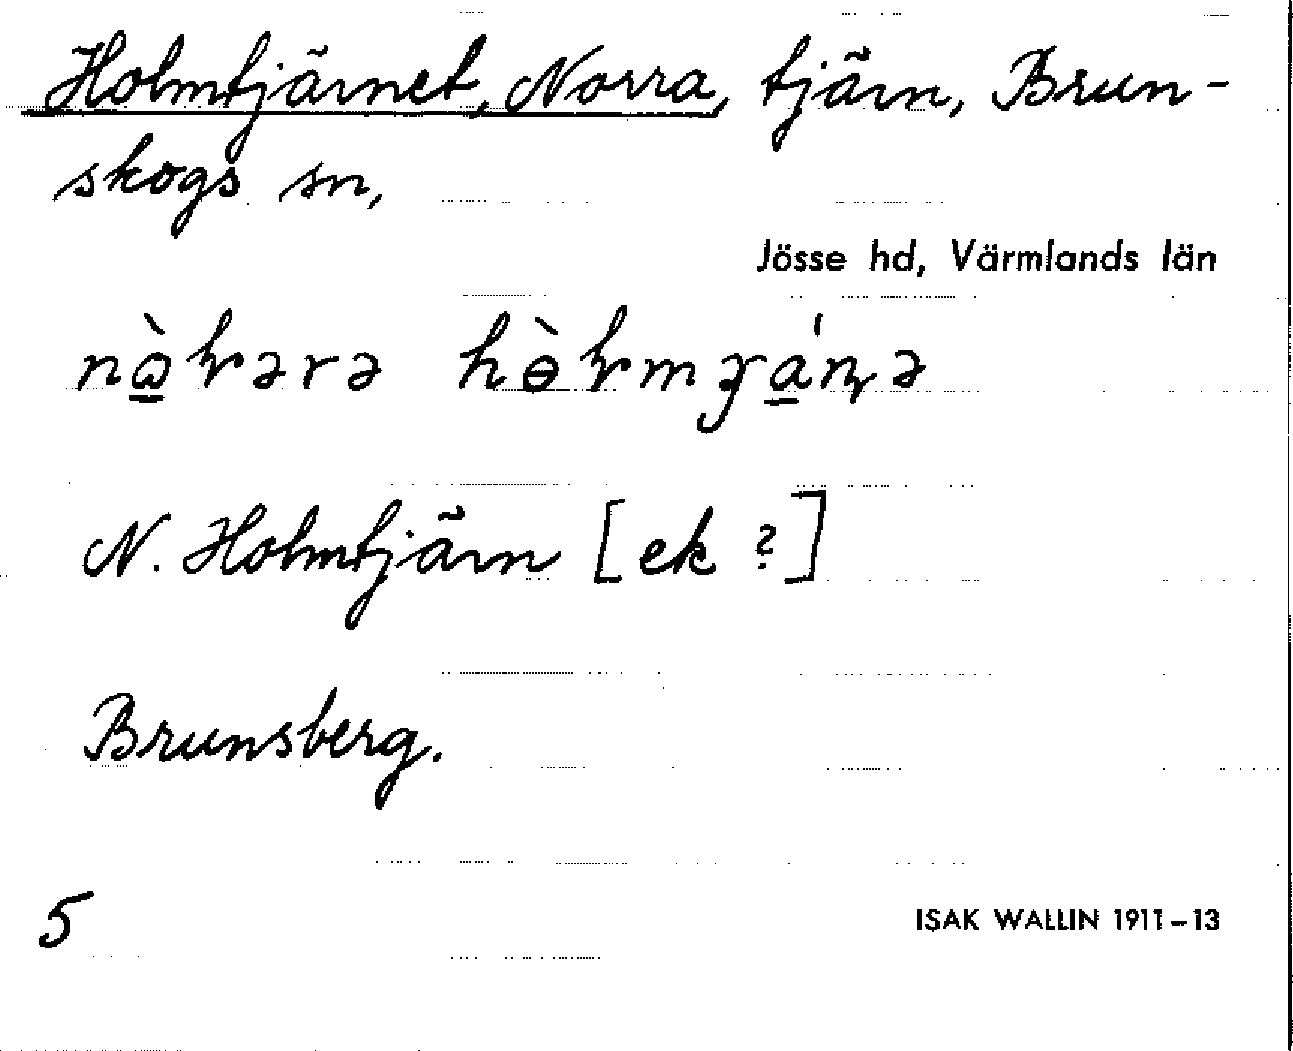 Holmtjärnet, Norra, tjärn, Brun-
skogs sn,
Jösse hd, Värmlands län
N. Holmtjärn [ek ?]
Brunsberg.
5
ISAK WALLIN 1911-13